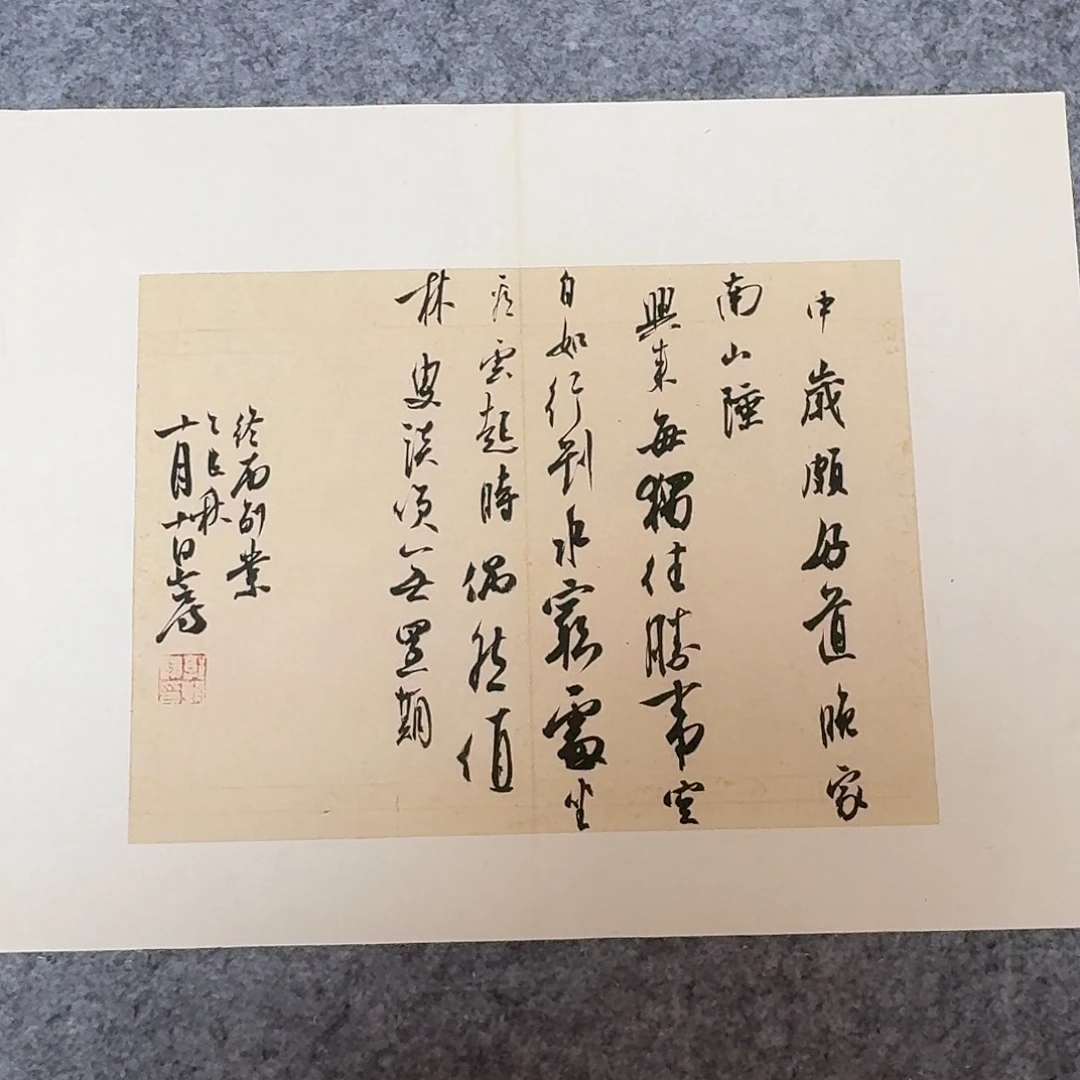 中歲頗好道晚家
南山陲
興來每獨往勝事空
自知行到水窮處坐
看雲起時偶然值
林叟談笑無還期
終南別業
乙巳秋
十月十日